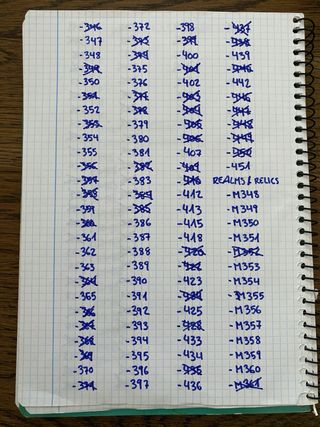 -346
-347
-348
-349
-350
-351
-352
-353
-354
-355
-356
-357
-358
-359
-360
-361
-362
-363
-364
-365
-366
-367
-368
-369
-370
-371
-372
-373
-374
-375
-376
-377
-378
-379
-380
-381
-382
-383
-384
-385
-386
-387
-388
-389
-390
-391
-392
-393
-394
-395
-396
-397
-398
-399
-400
-401
-402
-403
-404
-405
-406
-407
-409
-410
-412
-413
-415
-418
-420
-423
-425
-433
-434
-435
-436
-437
-438
-439
-440
-442
-446
-447
-448
-449
-450
-451
REALMS & RELICS
-M348
-M349
-M350
-M351
-M352
-M353
-M354
-M355
-M356
-M357
-M358
-M359
-M360
-M361